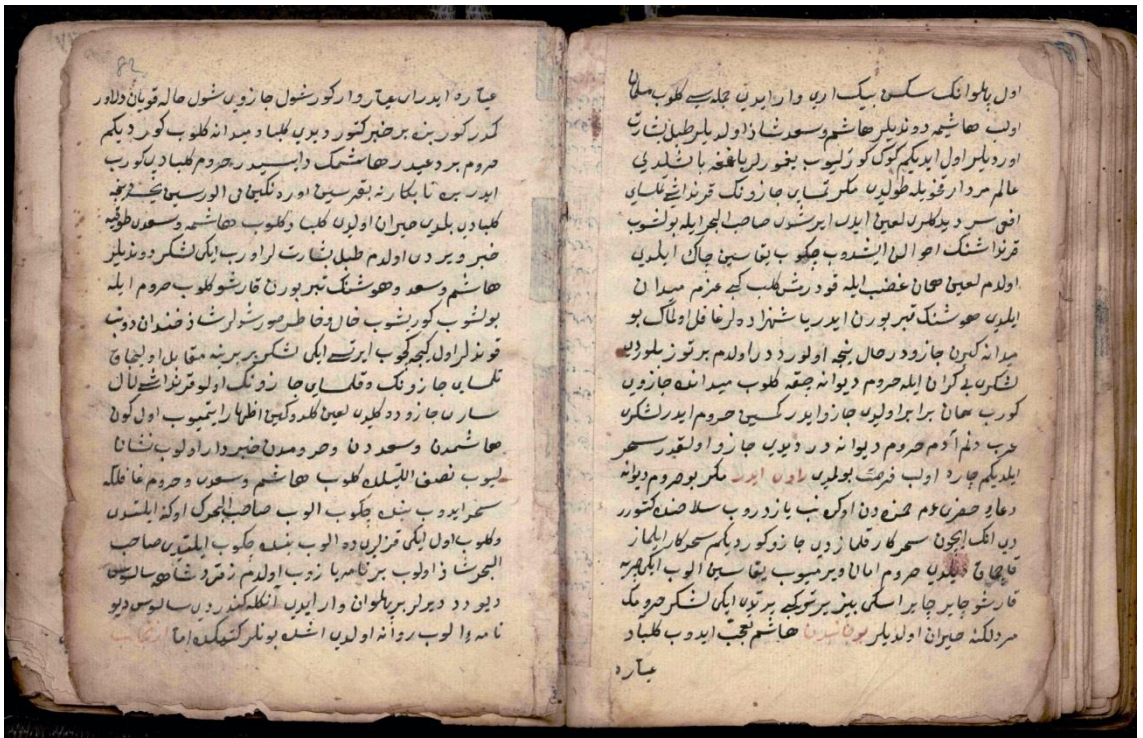 اول پهلوانك سكسن بيك اری وار ايدی جمله سی كلوب مسلمان
اولب هاشمه دونديلر هاشم و سعد شاذ اولديلر طبل بشارت
اورديلر اول ايديكم كوك كوزليوب يغمورلر ياغمه باشلدی
عالم مردار قخويله طولدی مكر تسای جازونك قرنداشی
افعی سر ديدكلری لعين ايدی ايرشدی صاحب البحر ايله بولشوب
قرنداشنك احوالن ايشدوب جكوب يقاسين چاك ايلدی
اولدم لعين همان غضب ايله قودرمش كلب كبی عزم ميدان
ايلدی هوشنك تبر بورن ايدر يا شهزاده لر غافل اولماك بو
ميدانه كيرن جازودر حال نجه اولور ددر اولدم بر توز بلوردی
لشكر بی كران ايله حروم ديوانه چقه كلوب ميدانده جازویی
كورب همان برابر اولدی جازو ايدر كمسين حروم ايدر لشكر
عرب دنم آدم حروم ديوانه در ديدی جازو اولقدر سحر
ايلديكم چاره اولب فرصت بولمدی راوی ايدر مكر بو حروم ديوانه
دعای حضر عم حمزه دن اوكرنب يازدروب سلاحنده كتورر
دی انك ايچون سحر كار قلمازدی جازو كورديكم سحر كار ايلماز
قاچماق ديلدی حروم امان ويرميوب يقاسين الوب ايكی
قارشو چاير چاير اسكی بيز يرتر كبی يرتدی ايكی لشكر حرومك
مردلكنه حيران اولديلر بو يانيدن هاشم تعجب ايدوب كلباد
عياره
82
عياره ايدر ای عيار وار كور شول جازویی شول حاله قويان دلاور
كمدر كورين بر خبر كتور ديدی كلباد ميدانه كلوب كورديكم
حروم برد عيدر هاشمك داييسيدر حروم كلبادی كورب
ايدر
كلبادی بلدی حيران اولدی كلباد كلوب هاشمه و سعده طوغری
خبر ويردی اولدم طبل بشارتلر اورب ايكی لشكر دونديلر
هاشم و سعد و هوشنك تبر بورن قارشو كلوب حروم ايله
بولشوب كورشوب حال و خاطر صورشولر شاذ خندان دونب
قونديلر اول كيجه كچوب ايرتسی ايكی لشكر بر برينه مقابل اوليجاق
تلسای جازونك و قلسای جازونك اولو قرنداشی
ساری جازو ده كلدی لعين كلدوكين اظهار ايتميوب اول كون
هاشمدن و سعددن و حرومدن خبردار اولوب نشانا
ليوب نصف الليلده كلوب هاشم و سعدی و حروم غافلكه
سحر ايدوب بنده چكوب الوب صاحب البحرك اوكنه ايلتدی
و كلوب اول ايكی قزلری ده الوب بنده چكوب ايلتدی صاحب
البحر شاذ اولوب بر نامه يازوب اولدم زمرد شاهه سالوس
ديو ددديرلر بر پهلوان وار ايدی انكله كندردی سالوس ديو
نامه يی الوب روانه اولدی اشده بونلر كتمكده اما